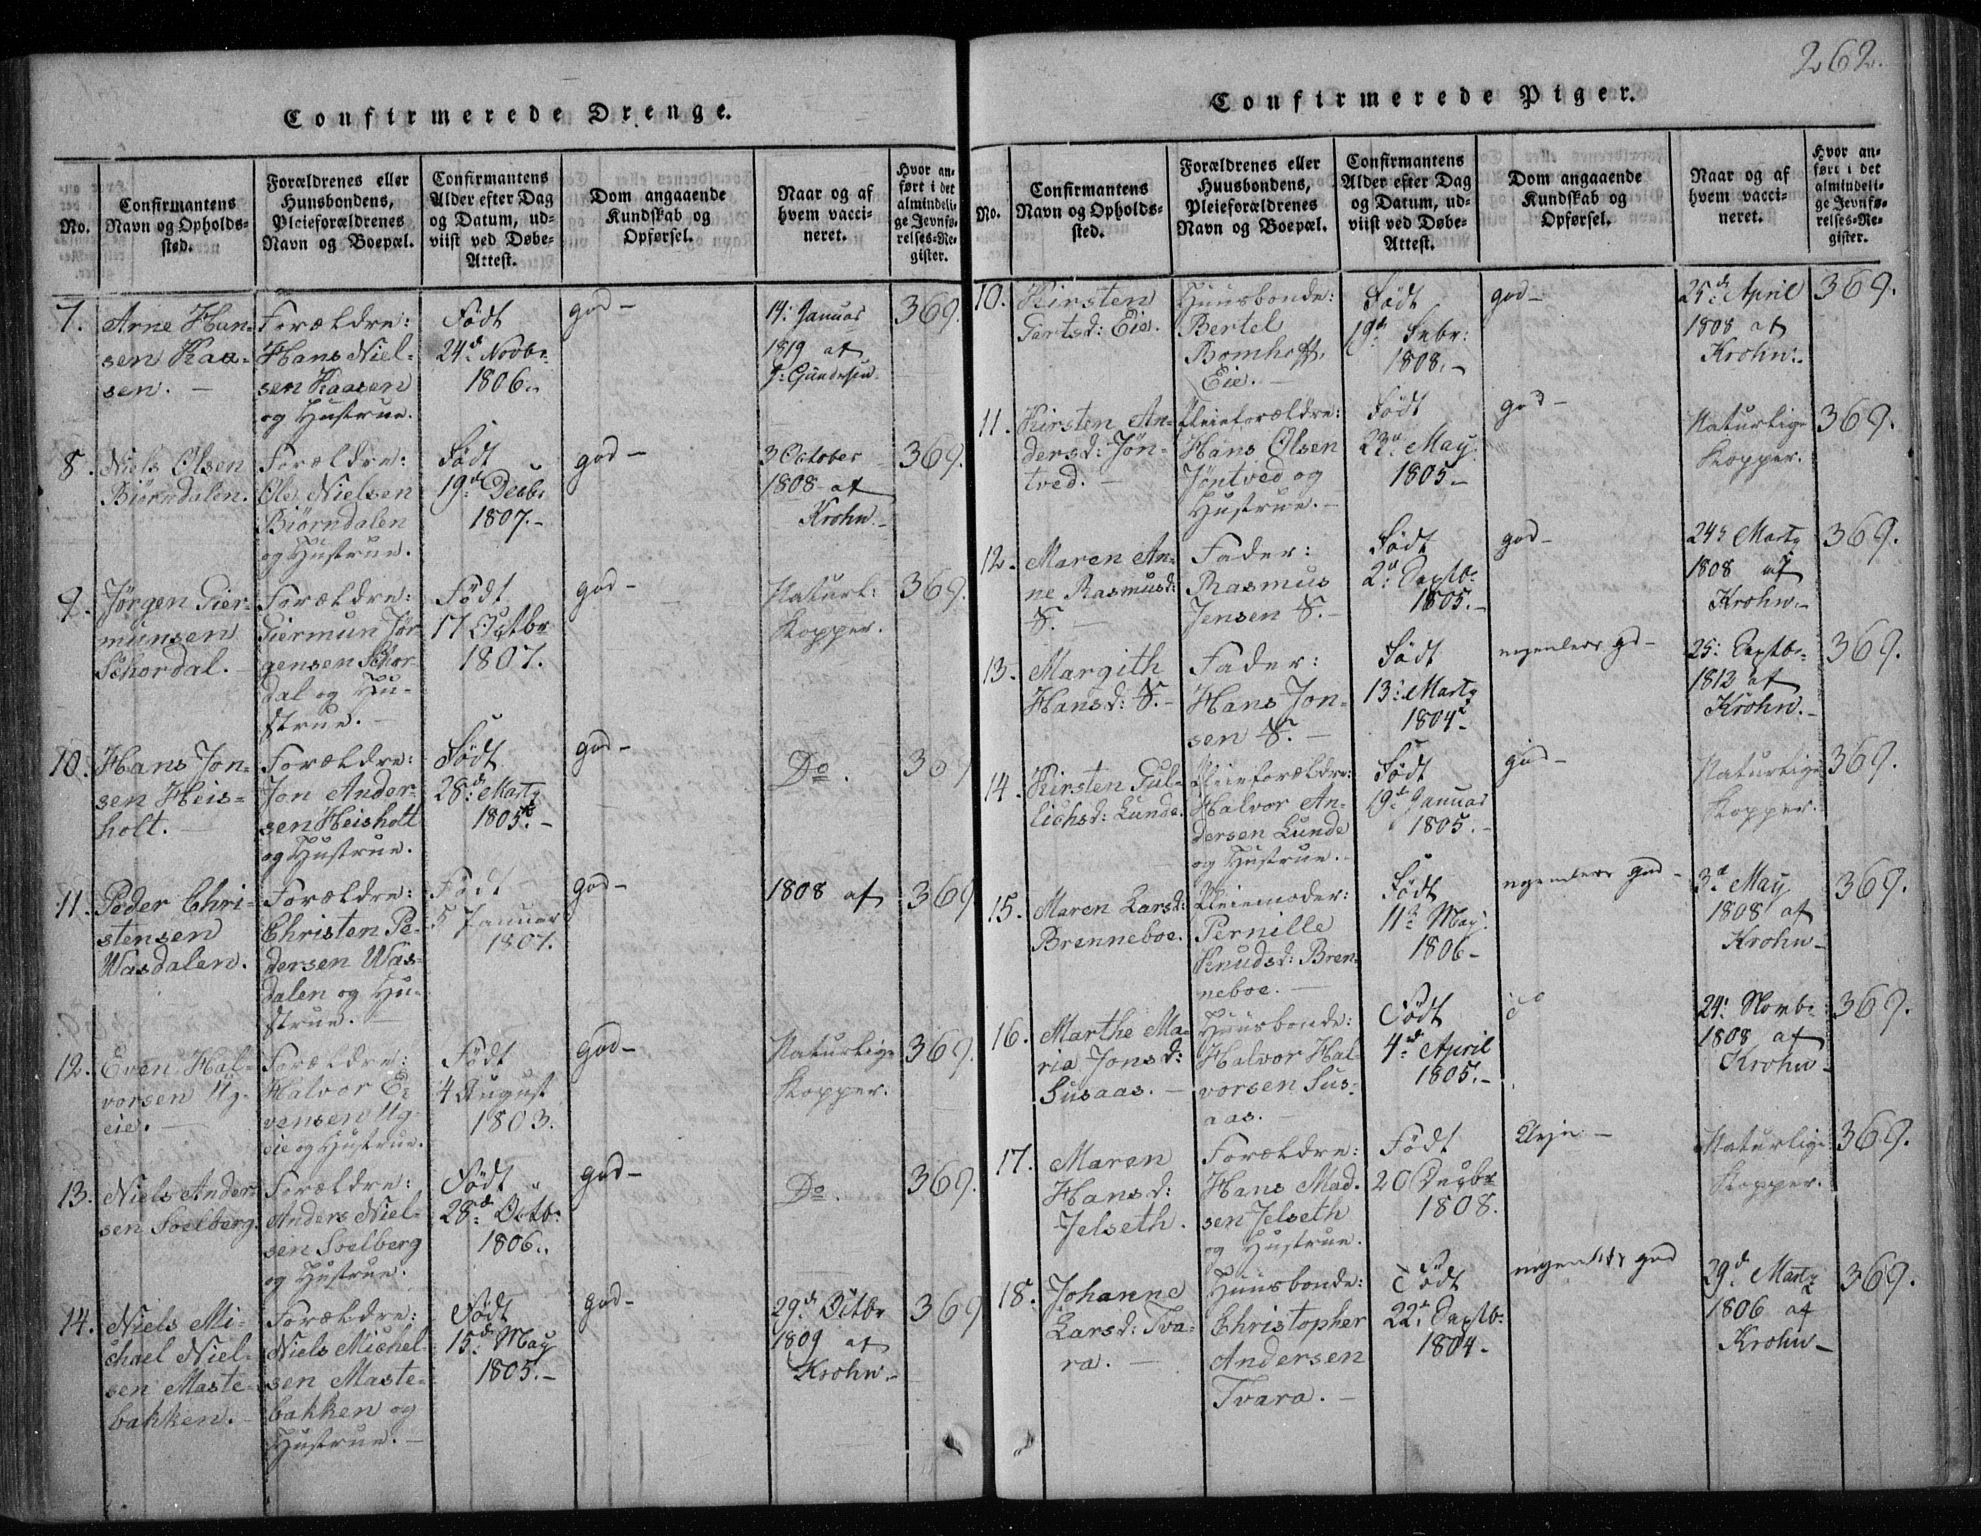 262.
Confirmerede Drenge.
No.
Confirmantens
Navn og Opholds-
sted.
Forældrenes eller
Huusbondens,
Pleieforældrenes
Navn og Boepæl.
Confirmantens
Alder efter Dag
og Datum, ud-
viist ved Døbe-
Attest.
Dom angaaende
Kundskab og
Opførsel.
Naar og af
hvem vacci-
neret.
Hvor an-
ført i det
almindeli-
ge Jevnfø-
relses-Re-
gister.
7.
Arne Han-
sen Kaa-
sen. -
Forældre:
Hans Niel-
sen Kaasen
og Hustrue.
Født
24d Novbr
1806..
god -
14: Januar
1819 af
J: Gundesen
369.
8.
Niels Olsen
Biørndalen.
Forældre:
Ole Nielsen
Biørndalen
og Hustrue.
Født
19d Decbr
1807. -
god -
3 October
1808 af
Krohn. -
369.
9.
Jørgen Gier-
munsen
Schordal. -
Forældre:
Giermun Jør
gensen Schor-
dal og Hu-
strue. -
Født
17 Octbr
1807.
god -
Naturl:
Kopper.
369.
10.
Hans Jon-
sen Heis-
holt. -
Forældre:
Jon Ander-
sen Heisholt
og Hustrue.
Født
28d Marty
1805. -
god -
Do.
369
11.
Peder Chri-
stensen
Wasdalen.
Forældre:
Christen Pe-
dersen Was-
dalen og Hu-
strue. -
Født
5 Januar
1807.
god -
1808 af
369
12.
Even Hal-
vorsen Ug-
eie. -
Forældre:
Halvor E-
vensen Ug-
eie og Hustrue.
Født
4 August
1803.
god -
Naturlige
Kopper.
369.
13.
Niels Ander-
sen Soelberg.
Forældre:
Anders Niel-
sen Soelberg
og Hustrue.
Født
28d Octbr
1806..
god -
Do.
369.
14.
Niels Mi-
chael Niel-
sen Maste-
bakken. -
Forældre:
Niels Michel-
sen Maste-
bakken og
Hustrue. -
Født
15d May
1805. -
god -
29d Octbr
1809 af
Krohn. -
369
Confirmerede Piger.
No.
Confirmantens
Navn og Opholds-
sted.
Forældrenes eller
Huusbondens,
Pleieforældrenes
Navn og Boepæl.
Confirmantens
Alder efter Dag
og Datum, ud-
viist ved Døbe-
Attest.
Dom angaaende
Kundskab og
Opførsel.
Naar og af
hvem vacci-
neret.
Hvor an-
ført i det
almindeli-
ge Jevnfø-
relses-Re-
gister.
10.
Kirsten
Gartsd: Eie.
Huusbonde:
Bertel
Bomhoff,
Eie. -
Født
19d Febr:
1808. -
god -
25d April
1808 af
Krohn.
369.
11.
Kirsten An-
dersd: Jøn-
tved. -
Pleieforældre:
Hans Olsen
Jøntved og
Hustrue. -
Født
May
1805 -
god -
Naturlige
Kopper.
369.
12.
Maren An-
ne Rasmusd:
S. -
Fader:
Rasmus
Jensen S. -
Født
2d Septb.
1805. -
god -
24d Marty
1808 af
Krohn. -
369.
13.
Margith
Hansd: S. -
Fader:
Hans Jon-
sen S. -
Født
13: Marty
1804
25: Septbr
1813 af
Krohn. -
369.
14.
Kirsten Gul-
lichsd: Lunde.
Pleieforældre:
Halvor An-
dersen Lunde
og Hustrue.
Født
19d Januar
1805. -
god -
Naturlige
Kopper.
369.
15.
Maren Larsd:
Brenneboe.
Pleiemoder:
Pernille
Knudsd: Bren-
neboe. -
Født
11d May
1806 -
god -
3d May
1808 af
Krohn -
369.
16.
Marthe Ma-
ria Jonsd:
Susaas. -
Huusbonde:
Halvor Hal-
vorsen Sus-
aas. -
Født
4d April
1805. -
24: Novbr
1808 af
Krohn -
369.
17.
Maren
Hansd:
Jelseth.
Forældre:
Hans Mad-
sen Jelseth
og Hustrue.
Født
20 Decbr
1808.
Naturlige
Kopper.
369.
18.
Johanne
Larsd: Tva-
ra. -
Huusbonde:
Christopher
Andersen
Tvara. -
Født
22d Septb.
1804 -
god
29d Marty
1806 af
Krohn -
369.